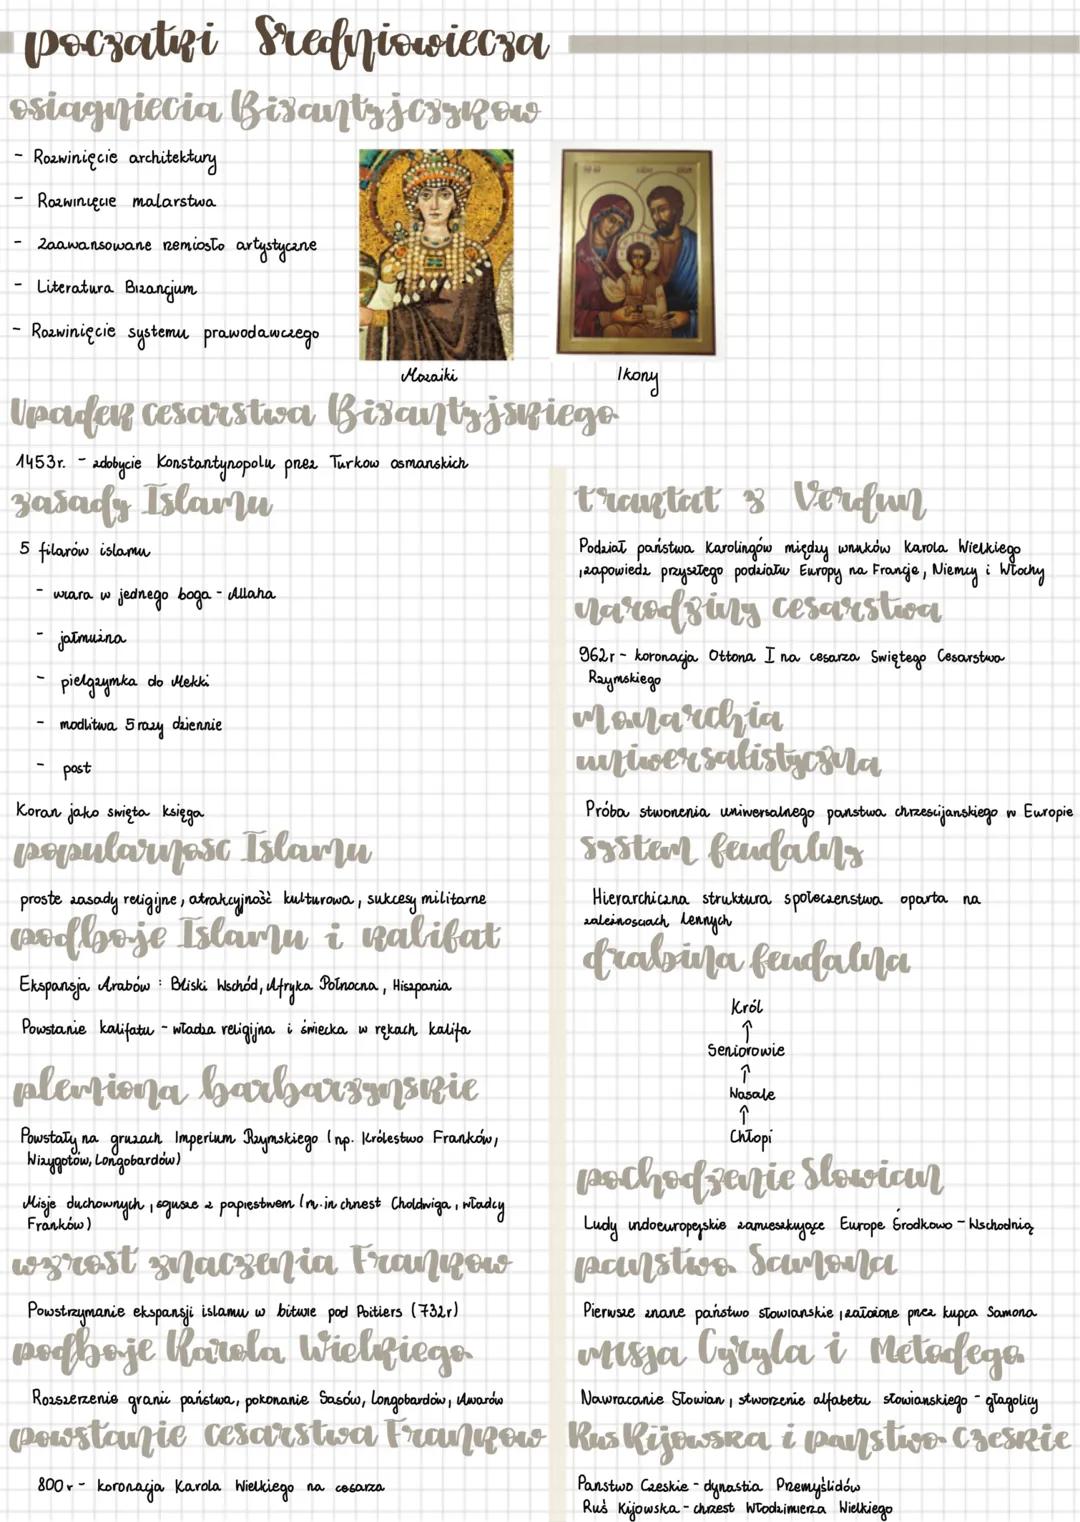 początki Sredniowiecza
osiagniecia Bizantyjczykow
- Rozwinięcie architektury
- Rozwinięcie malarstwa
- Zaawansowane rzemiosło artystyczne
- Literatura Bizancjum
- Rozwinięcie systemu prawodawczego
Mozaiki
Ikony
Upadek cesarstwa Bizantyjskiego
1453r. - zdobycie Konstantynopolu przez Turkow osmanskich
zasady Islamu
5 filarów islamu
- wiara w jednego boga - Allaha
- jałmużna
- pielgrzymka do Mekki
- modlitwa 5 razy dziennie
- post
Koran jako swięta księga
popularnosc Islamu
proste zasady religijne, atrakcyjność kulturowa, sukcesy militarne
podboje Islamu i kalifat
Ekspansja Arabów : Bliski Wschód, Afryka Północna, Hiszpania
Powstanie kalifatu - władza religijna i świecka w rękach kalifa
plemiona barbarzynskie
Powstały na gruzach Imperium Rzymskiego (np. Królestwo Franków,
Wizygotów, Longobardów)
Misje duchownych, sojusze z papiestwem (m.in chrzest Choldwiga, władcy
Franków)
wzrost znaczenia Frankow
Powstrzymanie ekspansji islamu w bitwie pod Poitiers (732r)
podboje Karola Wielkiego
Rozszerzenie granic państwa, pokonanie Sasów, Longobardów, Awarów
powstanie cesarstwa Frankow
800r - koronacja Karola Wielkiego na cesarza
traktat z Verdun
Podział państwa Karolingów między wnuków Karola Wielkiego
,zapowiedz przyszłego podziału Europy na Francje, Niemcy i Włochy
narodziny cesarstwa
962r - koronacja Ottona I na cesarza Swiętego Cesarstwa
Rzymskiego
monarchia
uniwersalistyczna
Próba stworzenia uniwersalnego panstwa chrzescijanskiego w Europie
system feudalny
Hierarchiczna struktura społeczenstwa oparta na
zależnosciach lennych
drabina feudalna
Król
↑
Seniorowie
↑
Wasale
↑
Chłopi
pochodzenie Slowian
Ludy indoeuropejskie zamieszkujące Europe Środkowo - Wschodnią
panstwo Samona
Pierwsze znane państwo słowianskie, założone przez kupca Samona
misja Cyryla i Metodego
Nawracanie Słowian, stworzenie alfabetu słowianskiego - głagolicy
Rus Kijowska i panstwo Czeskie
Panstwo Czeskie - dynastia Przemyślidów
Ruś Kijowska - chrzest Włodzimierza Wielkiego